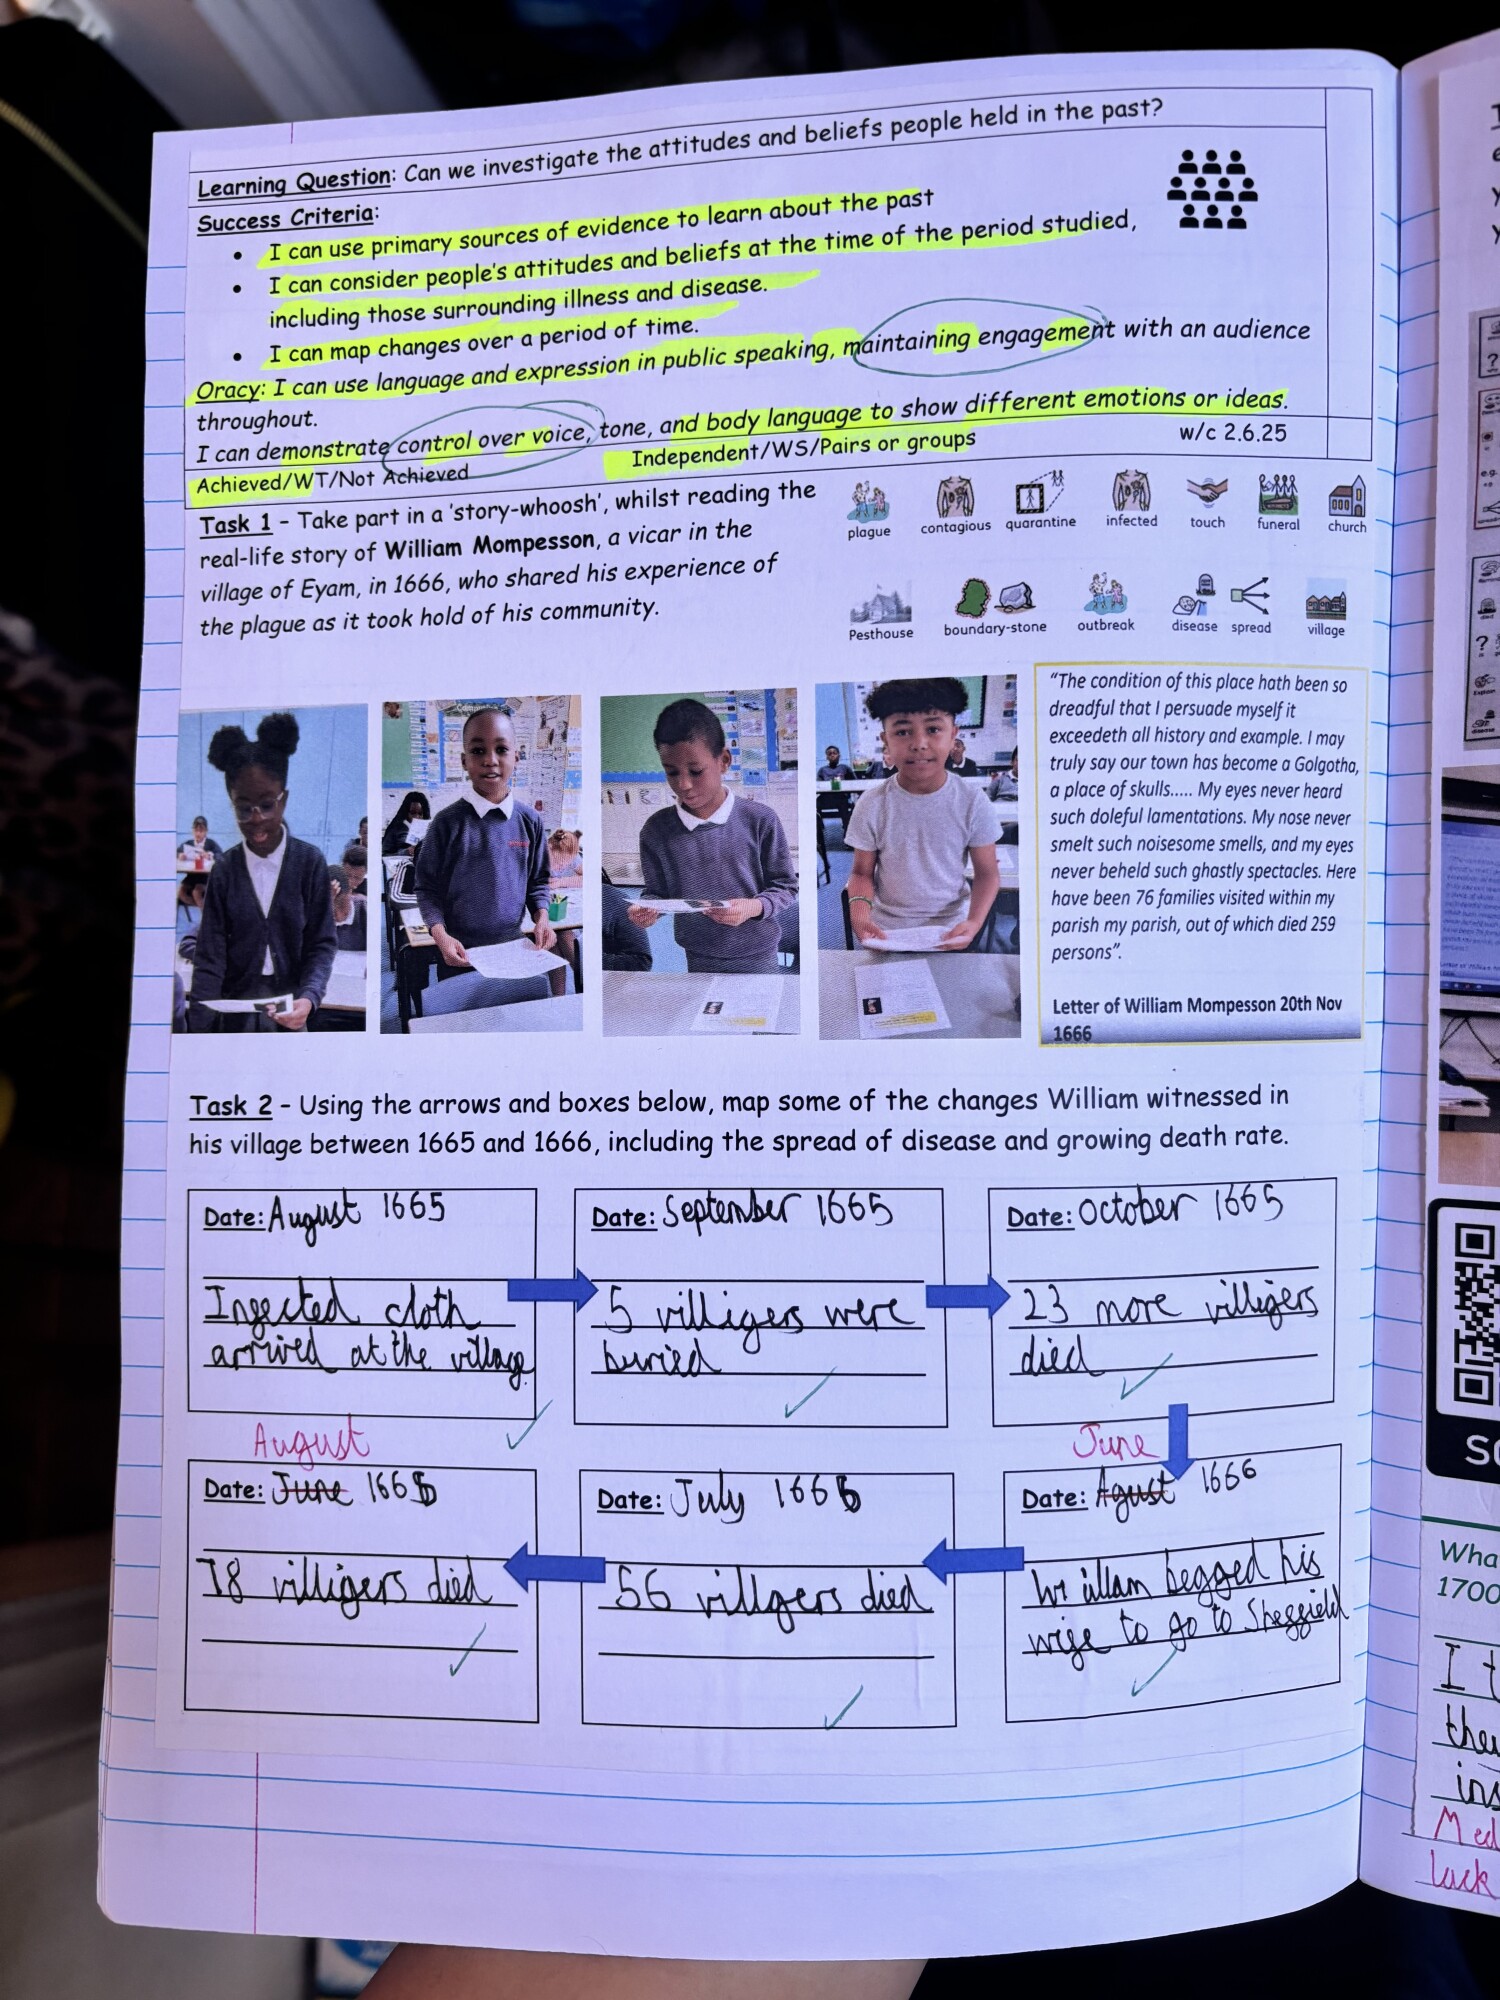 Learning Question: Can we investigate the attitudes and beliefs people held in the past?
Success Criteria:
• I can use primary sources of evidence to learn about the past
• I can consider people's attitudes and beliefs at the time of the period studied,
including those surrounding illness and disease.
• I can map changes over a period of time.
Oracy: I can use language and expression in public speaking, maintaining engagement with an audience
throughout.
I can demonstrate control over voice, tone, and body language to show different emotions or ideas.
Achieved/WT/Not Achieved
Independent/WS/Pairs or groups
w/c 2.6.25
Task 1 - Take part in a 'story-whoosh', whilst reading the
real-life story of William Mompesson, a vicar in the
village of Eyam, in 1666, who shared his experience of
the plague as it took hold of his community.
plague contagious quarantine infected touch funeral church
Pesthouse boundary-stone outbreak disease spread village
"The condition of this place hath been so
dreadful that I persuade myself it
exceedeth all history and example. I may
truly say our town has become a Golgotha,
a place of skulls..... My eyes never heard
such doleful lamentations. My nose never
smelt such noisesome smells, and my eyes
never beheld such ghastly spectacles. Here
have been 76 families visited within my
parish my parish, out of which died 259
persons".
Letter of William Mompesson 20th Nov
1666
Task 2 - Using the arrows and boxes below, map some of the changes William witnessed in
his village between 1665 and 1666, including the spread of disease and growing death rate.
Date: August 1665
Infected cloth
arrived at the village.
Date: September 1665
5 villigers were
buried
Date: October 1665
23 more villigers
died
June
Date: Agust 1666
William begged his
wife to go to Sheffield
Date: July 1666
56 villgers died
August
Date: June 1666
78 villigers died
Wha
1700
I t
the
ins
Med
lack